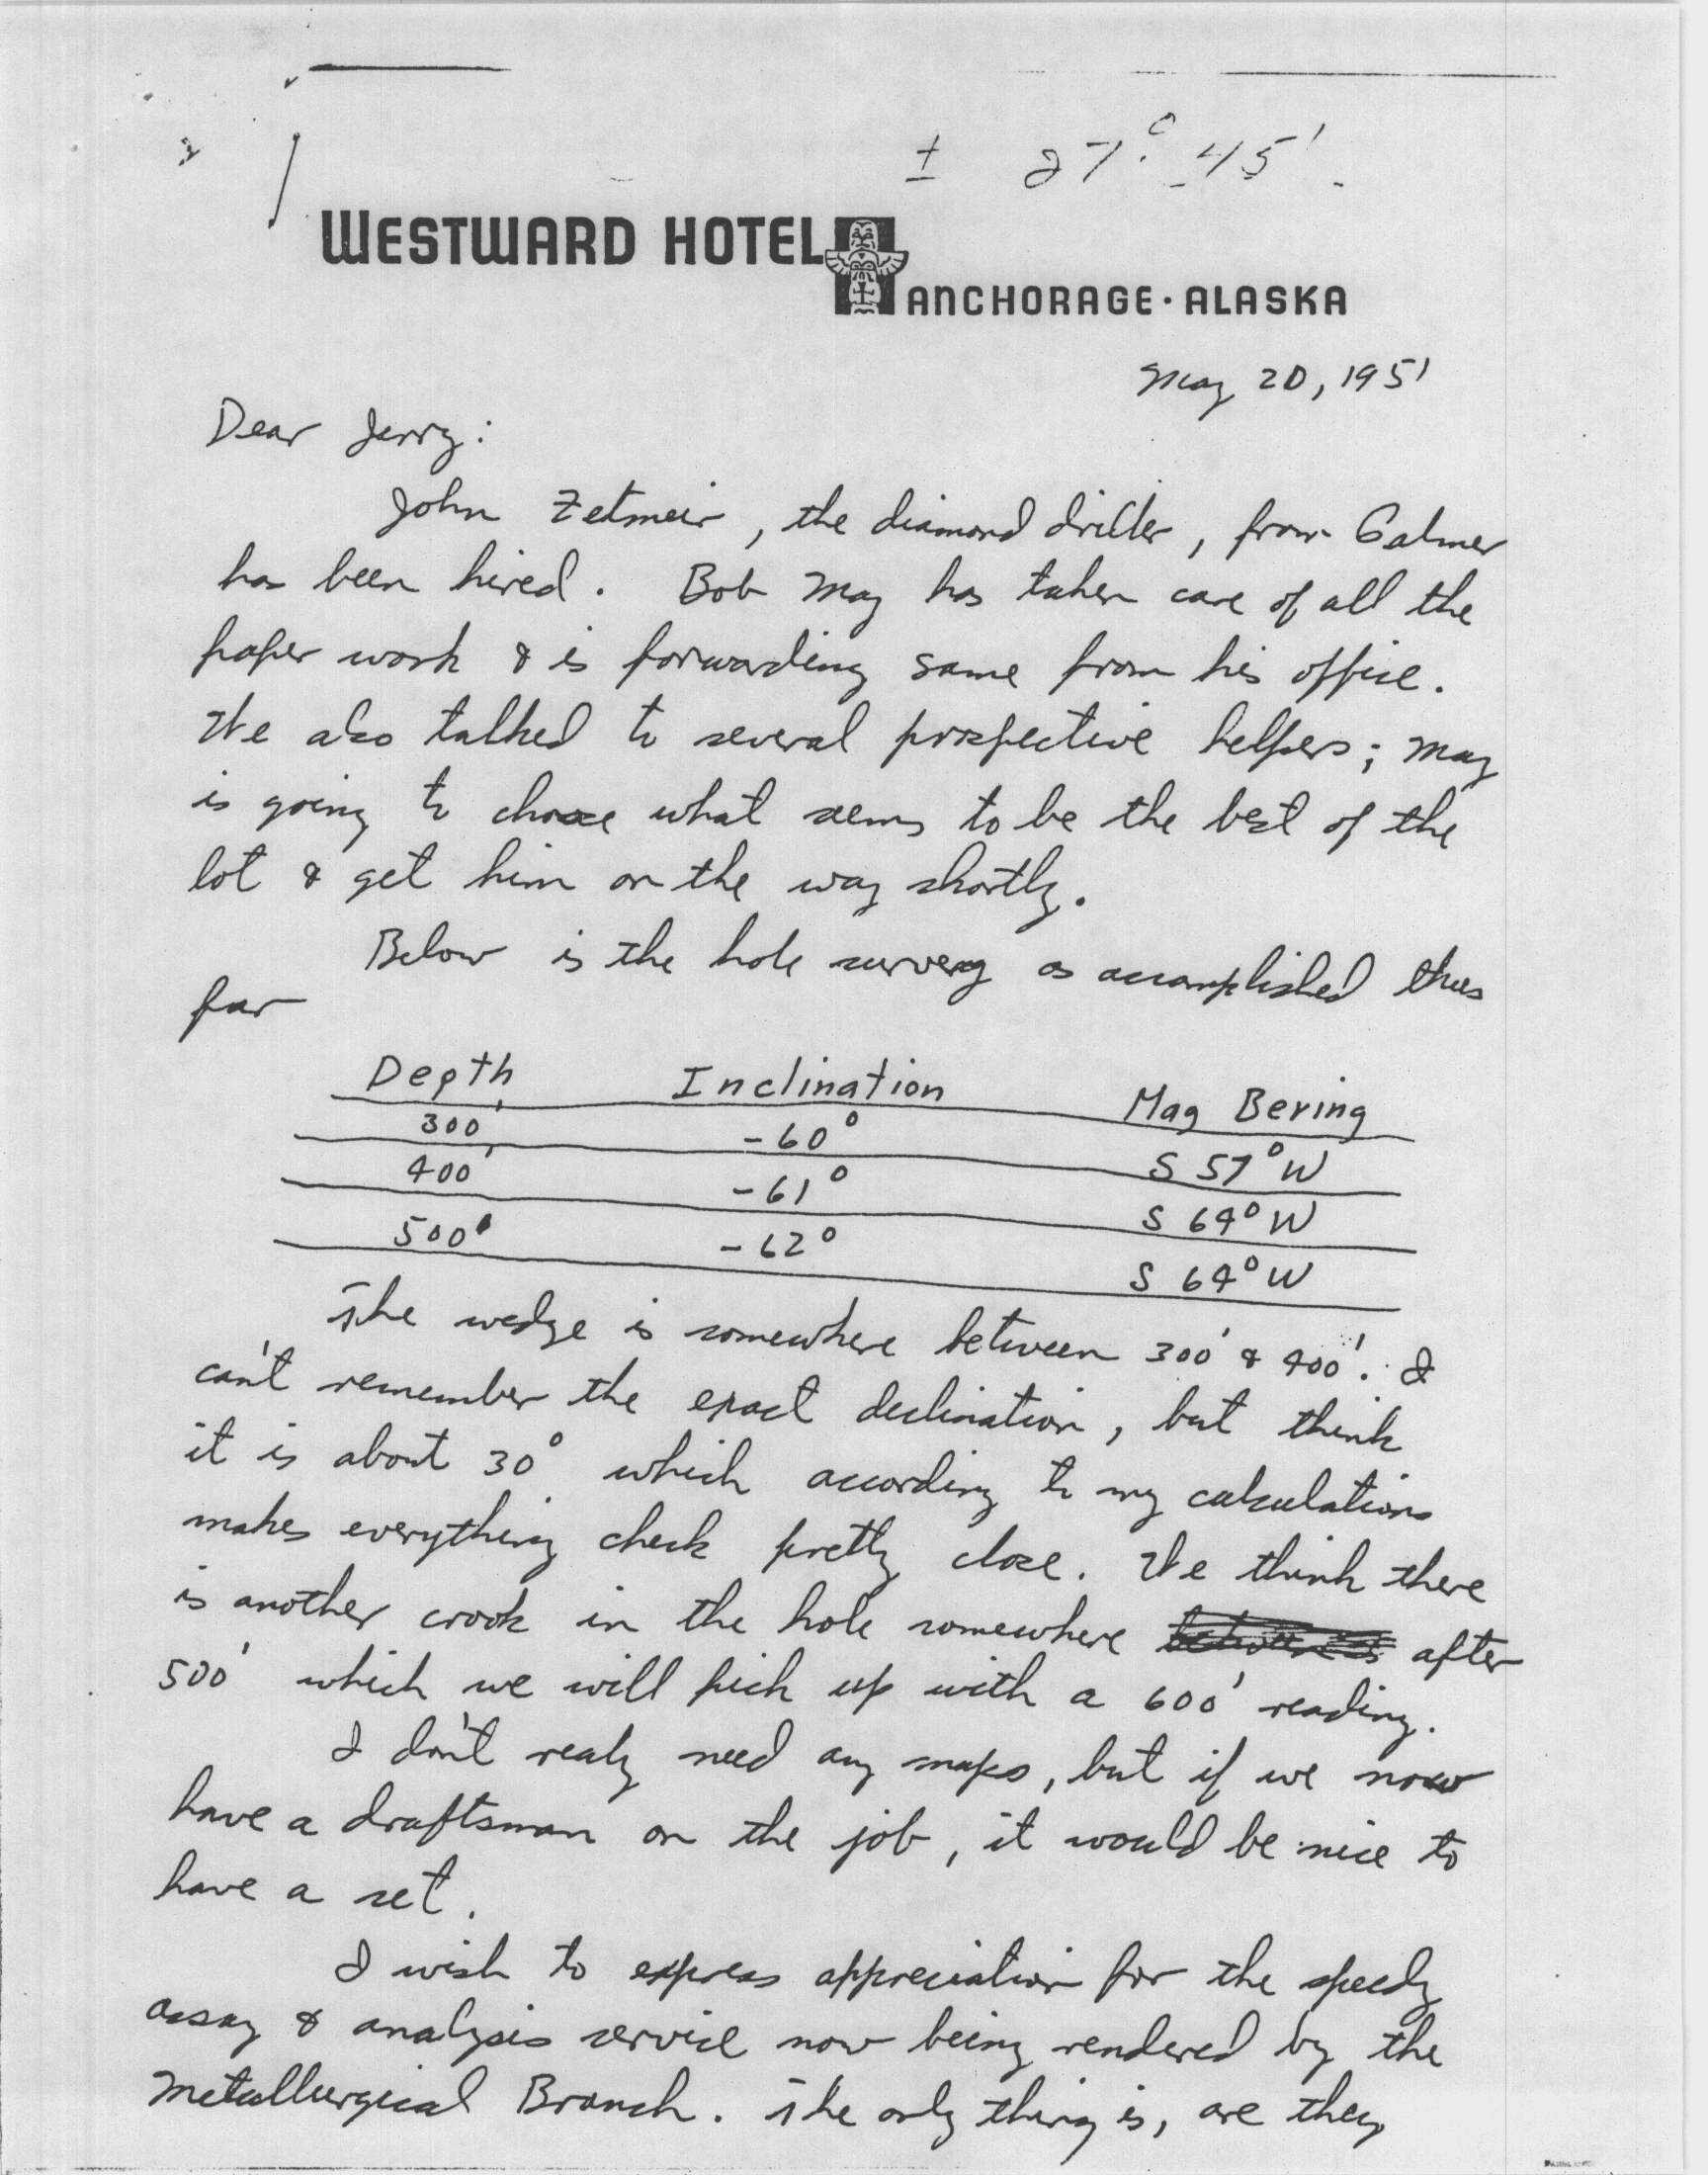 ± 27° 45'
WESTWARD HOTEL
ANCHORAGE · ALASKA
May 20, 1951
Dear Jerry:
John Zetmeir, the diamond driller, from Palmer
has been hired. Bob May has taken care of all the
paper work & is forwarding same from his office.
We also talked to several prospective helpers; May
is going to choose what seems to be the best of the
lot & get him on the way shortly.
Below is the hole survey as accomplished thus
far
Depth Inclination Mag Bering
300' -60° S 57° W
400' -61° S 64° W
500' -62° S 64° W
The wedge is somewhere between 300' & 400'. I
can't remember the exact declination, but think
it is about 30° which according to my calculations
makes everything check pretty close. We think there
is another crook in the hole somewhere after
500' which we will pick up with a 600' reading.
I don't realy need any maps, but if we now
have a draftsman on the job, it would be nice to
have a set.
I wish to express appreciation for the speedy
assay & analysis service now being rendered by the
Metallurgical Branch. The only thing is, are they